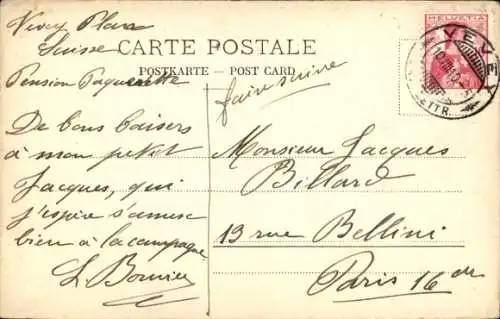 Vevey Plan
Suisse
Pension Paquerette
CARTE POSTALE
POSTKARTE - POST CARD
faire suivre
HELVETIA
VEVEY
LETTR.
De bons baisers
à mon petit
Jacques, qui
j'espère s'amuse
bien à la campagne
Monsieur Jacques
Billard
13 rue Bellini
Paris 16e